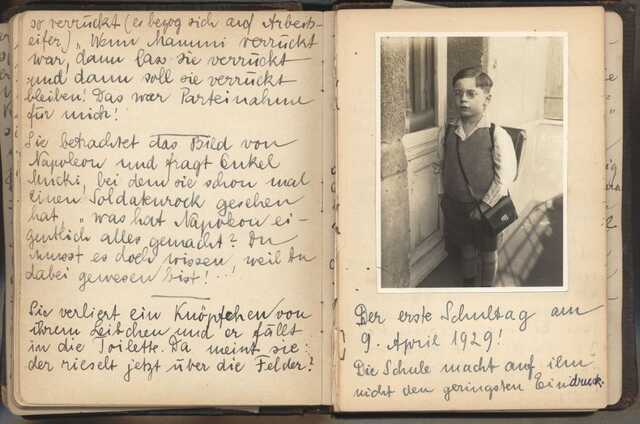 so verrückt (es bezog sich auf Arbeits-
eifer) „Wenn Mammi verrückt
war, dann lass sie verrückt
und dann soll sie verrückt
bleiben! Das war Parteinahm
für mich!
Sie betrachtet das Bild von
Napoleon und fragt Onkel
Mucki, bei dem sie schon mal
einen Soldatenrock gesehen
hat, „was hat Napoleon ei-
gentlich alles gemacht? Du
musst es doch wissen, weil Du
dabei gewesen bist!..'
Sie verliert ein Knöpfchen von
ihrem Leibchen und er fällt
in die Toilette. Da meint sie:
der rieselt jetzt über die Felder?
Der erste Schultag am
9. April 1929!
Die Schule macht auf ihn
nicht den geringsten Eindruck.